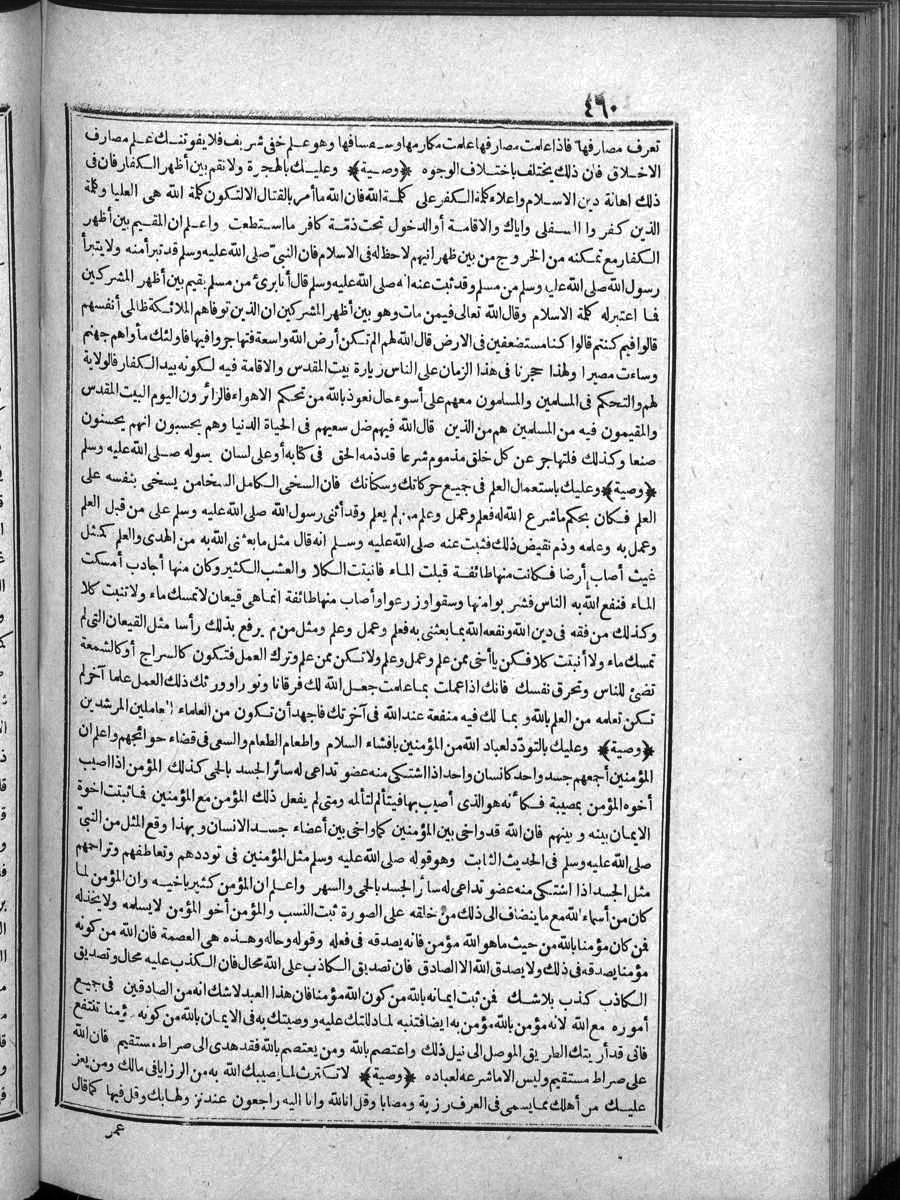 ٤٦٠
تعرف مصارفها فاذا علمت مصارفها علمت مكارمها وسفسافها وهو علم خفى شريف فلا يفوتنك علم مصارف
الاخلاق فان ذلك يختلف باختلاف الوجوه ﴿وصية﴾ وعليك بالهجرة ولا تقم بين أظهر الكفار فان فى
ذلك اهانة دين الاسلام واعلاء كلمة الكفر على كلمة الله فان الله ما أمر بالقتال الا لتكون كلمة الله هى العليا وكلمة
الذين كفروا السفلى واياك والاقامة أو الدخول تحت ذمّة كافر ما استطعت واعلم ان المقيم بين أظهر
الكفار مع تمكنه من الخروج من بين ظهرانيهم لا حظ له فى الاسلام فان النبىّ صلى الله عليه وسلم قد تبرأ منه ولا يتبرأ
رسول الله صلى الله عليه وسلم من مسلم وقد ثبت عنه انه صلى الله عليه وسلم قال أنا برىء من مسلم يقيم بين أظهر المشركين
فما اعتبر له كلمة الاسلام وقال الله تعالى فيمن مات وهو بين أظهر المشركين ان الذين توفاهم الملائكة ظالمى أنفسهم
قالوا فيم كنتم قالوا كنا مستضعفين فى الارض قال الله لهم الم تكن أرض الله واسعة فتهاجروا فيها فاولئك مأواهم جهنم
وساءت مصيرا ولهذا حجرنا فى هذا الزمان على الناس زيارة بيت المقدس والاقامة فيه لكونه بيد الكفار فالولاية
لهم والتحكم فى المسلمين والمسلمون معهم على أسوء حال نعوذ بالله من تحكم الاهواء فالزائرون اليوم البيت المقدس
والمقيمون فيه من المسلمين هم من الذين قال الله فيهم ضل سعيهم فى الحياة الدنيا وهم يحسبون انهم يحسنون
صنعا وكذلك فلتهاجر عن كل خلق مذموم شرعا قد ذمه الحق فى كتابه أو على لسان رسوله صلى الله عليه وسلم
﴿وصية﴾ وعليك باستعمال العلم فى جميع حركاتك وسكناتك فان السخى الكامل السخا من يسخى بنفسه على
العلم فكان بحكم ما شرع الله له فعلم وعمل وعلم من لم يعلم وقد أثنى رسول الله صلى الله عليه وسلم على من قبل العلم
وعمل به وعلمه وذم نقيض ذلك فثبت عنه صلى الله عليه وسلم انه قال مثل ما بعثنى الله به من الهدى والعلم كمثل
غيث أصاب أرضا فكانت منها طائفة قبلت الماء فانبتت الكلا والعشب الكثير وكان منها أجادب أمسكت
الماء فنفع الله به الناس فشربوا منها وسقوا وزرعوا وأصاب منها طائفة انما هى قيعان لا تمسك ماء ولا تنبت كلا
وكذلك من فقه فى دين الله ونفعه الله بما بعثنى به فعلم وعمل وعلم ومثل من لم يرفع بذلك رأسا مثل القيعان التى لم
تمسك ماء ولا أنبتت كلا فكن يا أخى ممن علم وعمل وعلم ولا تكن ممن علم وترك العمل فتكون كالسراج أو كالشمعة
تضئ للناس وتحرق نفسك فانك اذا عملت بما علمت جعل الله لك فرقانا ونورا وورثك ذلك العمل علما آخر لم
تكن تعلمه من العلم بالله وبما لك فيه منفعة عند الله فى آخرتك فاجهد أن تكون من العلماء العاملين المرشدين
﴿وصية﴾ وعليك بالتودّد لعباد الله من المؤمنين بافشاء السلام واطعام الطعام والسعى فى قضاء حوائجهم واعلم ان
المؤمنين أجمعهم جسد واحد كانسان واحد اذا اشتكى منه عضو تداعى له سائر الجسد بالحمى كذلك المؤمن اذا اصيب
أخوه المؤمن بمصيبة فكأنه هو الذى أصيب بها فيتألم لتألمه ومتى لم يفعل ذلك المؤمن مع المؤمنين فما ثبتت اخوة
الايمان بينه وبينهم فان الله قد واخى بين المؤمنين كما واخى بين أعضاء جسد الانسان وبهذا وقع المثل من النبىّ
صلى الله عليه وسلم فى الحديث الثابت وهو قوله صلى الله عليه وسلم مثل المؤمنين فى توددهم وتعاطفهم وتراحمهم
مثل الجسد اذا اشتكى منه عضو تداعى له سائر الجسد بالحمى والسهر واعلم ان المؤمن كثير باخيه وان المؤمن لما
كان من أسماء الله مع ما ينضاف الى ذلك من خلقه على الصورة ثبت النسب والمؤمن أخو المؤمن لا يسلمه ولا يخذله
فمن كان مؤمنا بالله من حيث ما هو الله مؤمن فانه يصدقه فى فعله وقوله وحاله وهذه هى العصمة فان الله من كونه
مؤمنا يصدقه فى ذلك ولا يصدق الله الا الصادق فان تصديق الكاذب على الله محال فان الكذب عليه محال وتصديق
الكاذب كذب بلا شك فمن ثبت ايمانه بالله من كون الله مؤمنا فان هذا العبد لا شك انه من الصادقين فى جميع
أموره مع الله لانه مؤمن بالله مؤمن به ايضا فتنبه لما دللتك عليه ووصيتك به فى الايمان بالله من كونه مؤمنا تنتفع
فانى قد أريتك الطريق الموصل الى نيل ذلك واعتصم بالله ومن يعتصم بالله فقد هدى الى صراط مستقيم فان الله
على صراط مستقيم وليس الا ما شرعه لعباده ﴿وصية﴾ لا تكترث لما يصيبك الله به من الرزايا فى مالك ومن يعز
عليك من أهلك مما يسمى فى العرف رزية ومصابا وقل انا لله وانا اليه راجعون عند نزولها بك وقل فيها كما قال
عمر